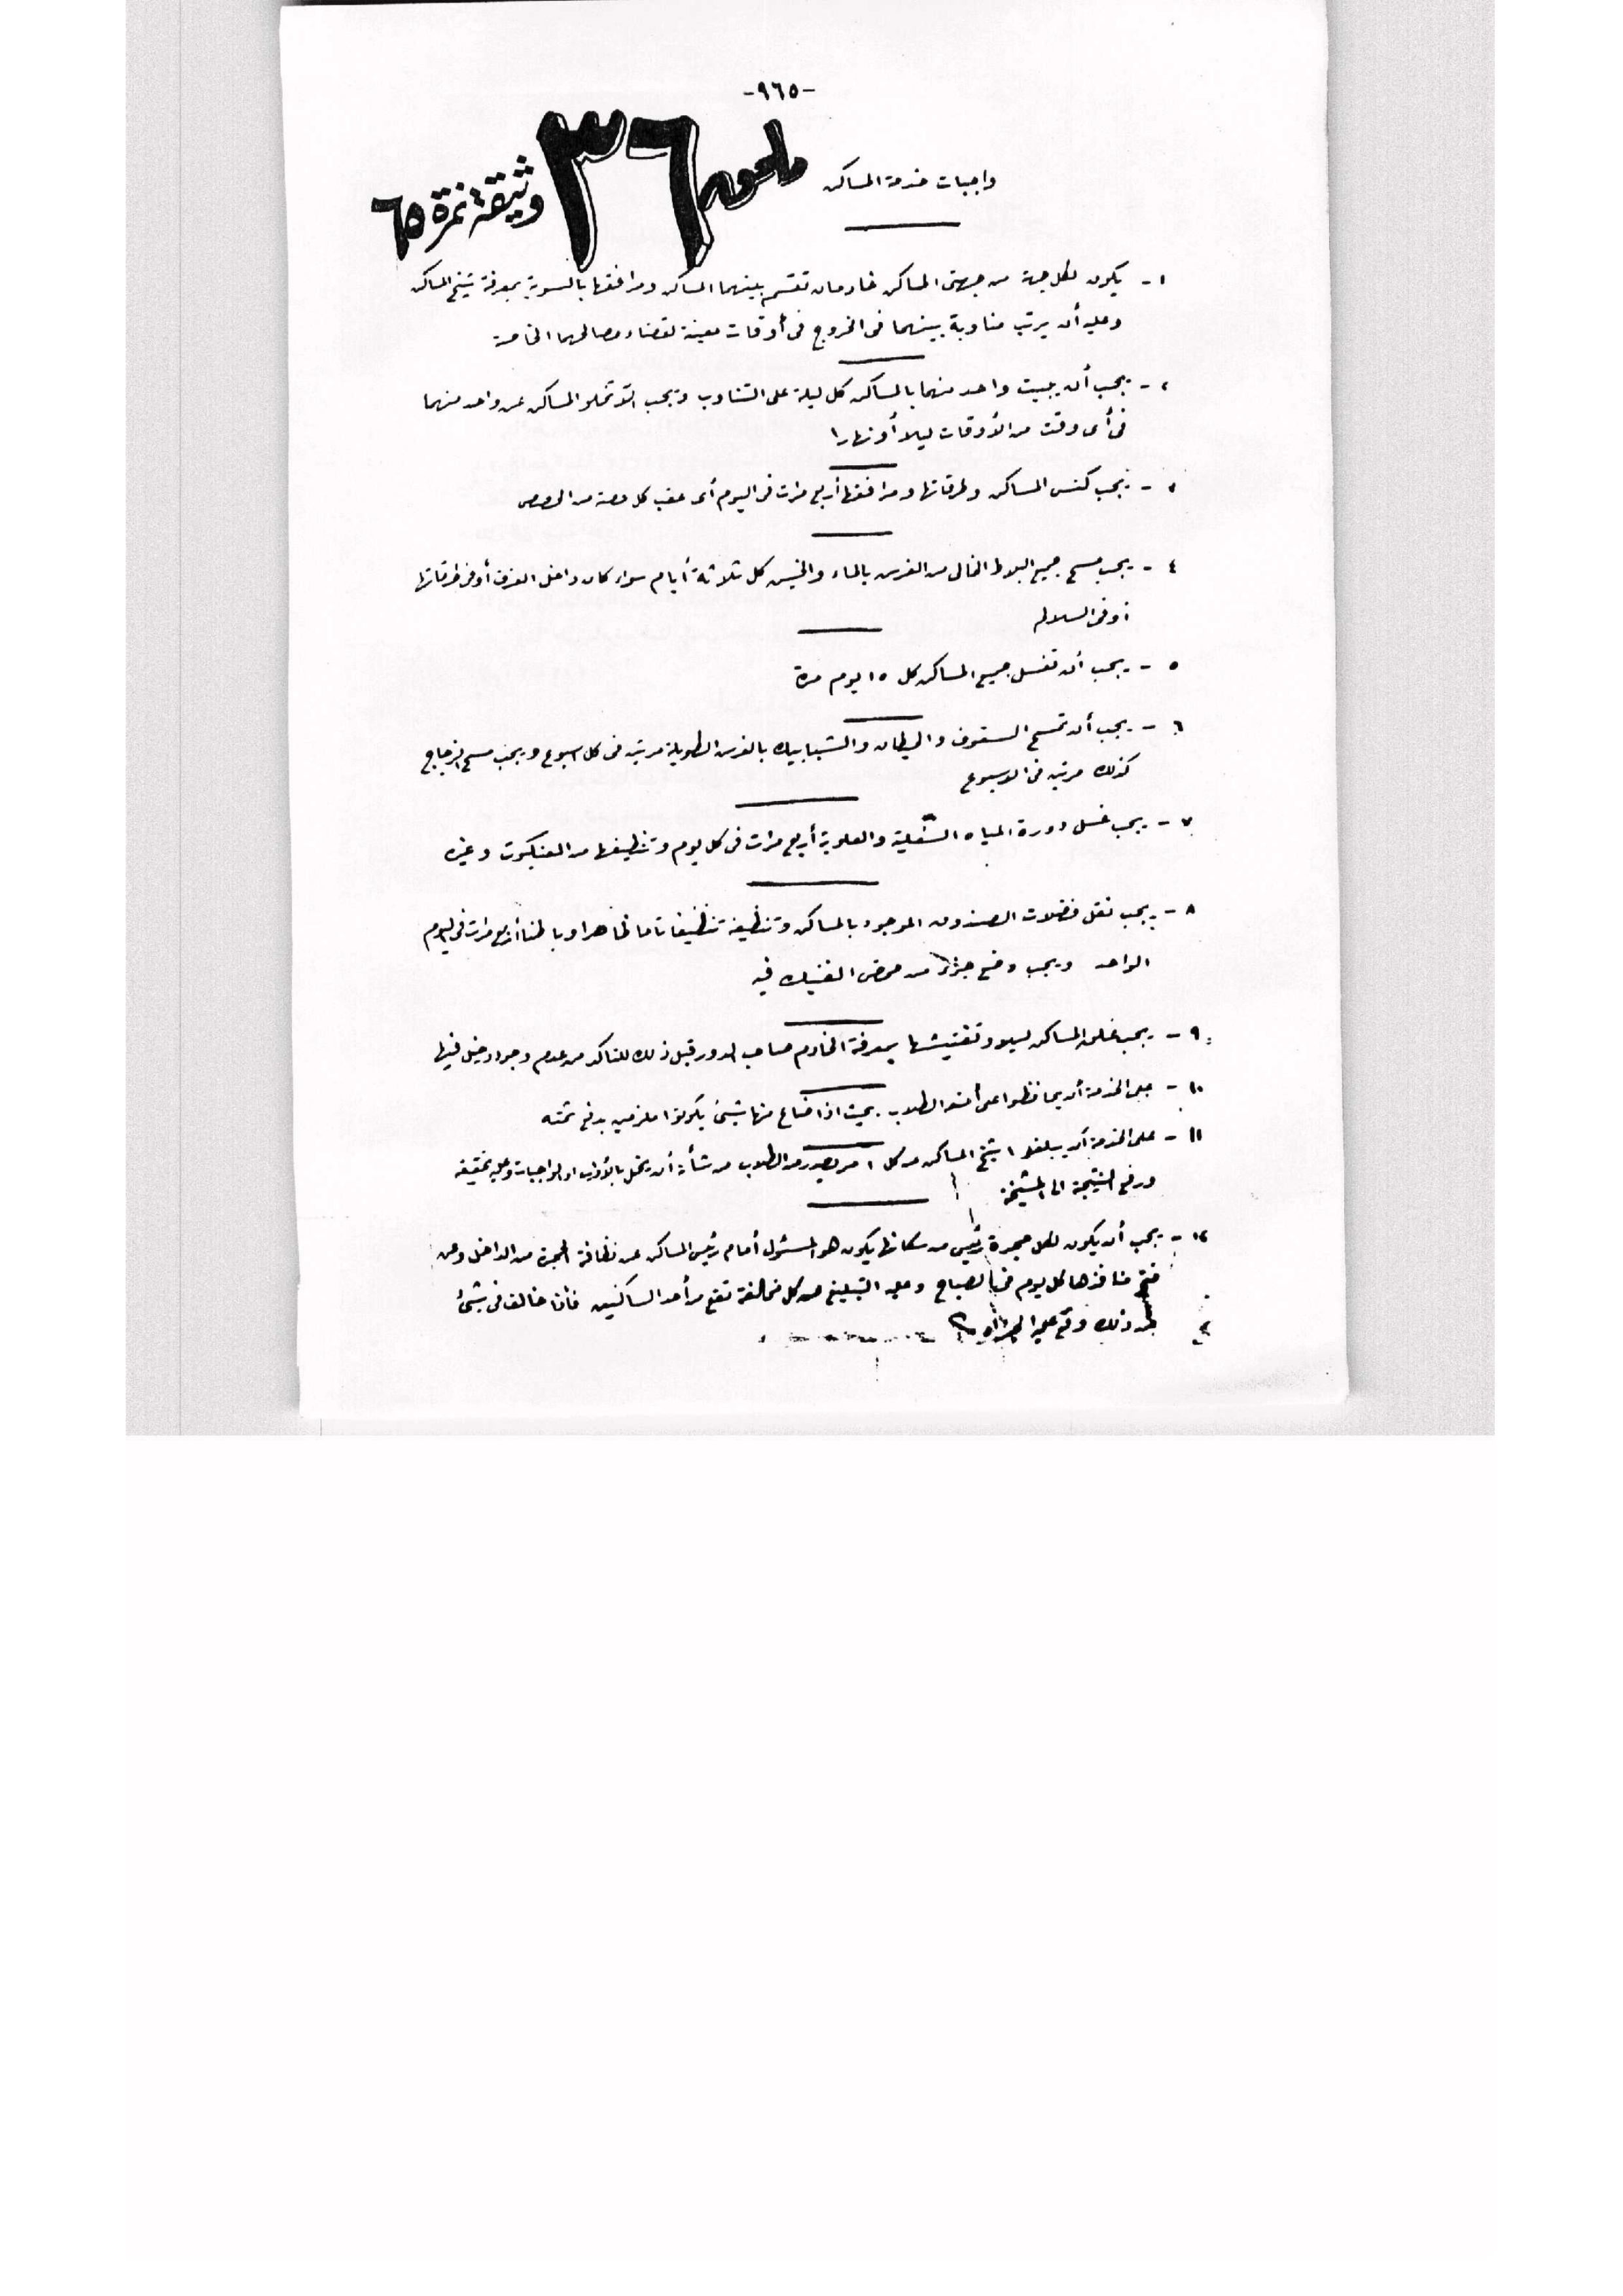 -٩٦٥-
ملحق ٣٦ وثيقة نمرة ٦٥
واجبات خدمة المساكن
١- يكون لكل جهة من جهتى المساكن خادمان تقسم بينهما المساكن ومرافقها بالسوية بمعرفة شيخ المساكن
وعليه أن يرتب مناوبة بينهما فى الخروج فى أوقات معينة لقضاء مصالحهما الخاصة
٢- يجب أن يبيت واحد منهما بالمساكن كل ليلة على التناوب ويجب ألا تخلو المساكن عن واحد منهما
فى أى وقت من الأوقات ليلا أو نهارا
٣- يجب كنس المساكن وطرقاتها ومرافقها أربع مرات فى اليوم أى عقب كل حصة من الحصص
٤- يجب مسح جميع البلاط الخالى من الفرش بالماء والخيش كل ثلاثة أيام سواء كان داخل الغرف أو فى طرقاتها
أو فى السلالم
٥- يجب أن تغسل جميع المساكن كل ١٥ يوم مرة
٦- يجب أن تمسح السقوف والحيطان والشبابيك بالفرش الطويلة مرتين فى كل اسبوع ويجب مسح الزجاج
كذلك مرتين فى الاسبوع
٧- يجب غسل دورة المياه السفلية والعلوية أربع مرات فى كل يوم وتنظيفها من العنكبوت وغيره
٨- يجب نقل فضلات الصندوق الموجود بالمساكن وتنظيفه تنظيفا تاما ظاهرا وباطنا أربع مرات فى اليوم
الواحد ويجب وضع جزء من حمض الفنيك فيه
٩- يجب غلق المساكن ليلا وتفتيشها بمعرفة الخادم صاحب الدور قبل ذلك للتأكد من عدم وجود دخيل فيها
١٠- على الخدمة أن يحافظوا على أمتعة الطلاب بحيث اذا ضاع منها شىء يكونوا ملزمين بدفع ثمنه
١١- على الخدمة أن يبلغوا شيخ المساكن عن كل امر يصدر من الطلاب من شأنه أن يخل بالآداب او الواجبات وعليه تحقيقه
ورفع النتيجة الى المشيخة
١٢- يجب أن يكون لكل حجرة رئيس من سكانها يكون هو المسئول أمام رئيس المساكن عن نظافة الحجرة من الداخل وعن
فتح منافذها كل يوم فى الصباح وعليه التبليغ عن كل مخالفة تقع من أحد الساكنين فاذا خالف فى شىء
من ذلك وقع عليه الجزاء